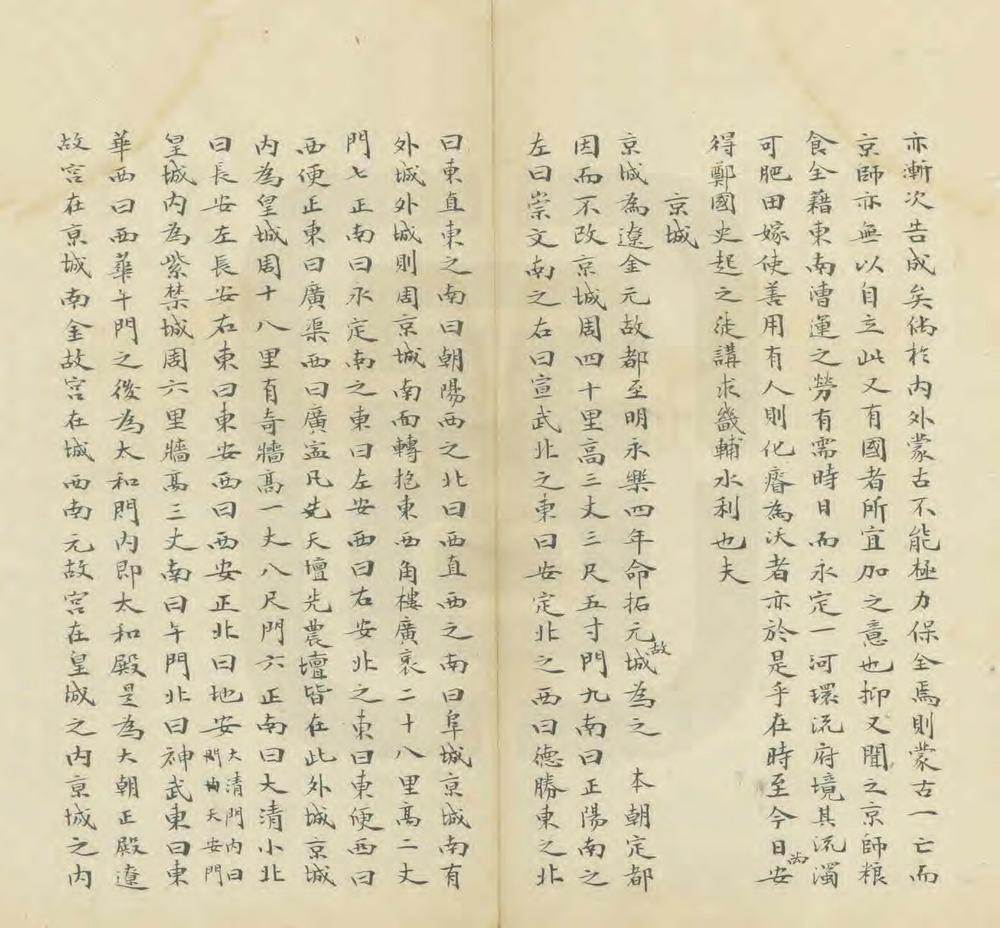 亦漸次告成矣倘於內外蒙古不能極力保全焉則蒙古一亡而
京師亦無以自立此又有國者所宜加之意也抑又聞之京師粮
食全藉東南漕運之勞有需時日而永定一河環流府境其流濁
可肥田嫁使善用有人則化瘠為沃者亦於是乎在時至今日尚安
得鄭國史起之徒講求畿輔水利也夫
京城
京城為遼金元故都至明永樂四年命拓元故城為之　本朝定都
因而不改京城周四十里高三丈三尺五寸門九南曰正陽南之
左曰崇文南之右曰宣武北之東曰安定北之西曰德勝東之北
曰東直東之南曰朝陽西之北曰西直西之南曰阜城京城南有
外城外城則周京城南面轉抱東西角樓廣袤二十八里高二丈
門七正南曰永定南之東曰左安西曰右安北之東曰東便西曰
西便正東曰廣渠西曰廣寍凡先天壇先農壇皆在此外城京城
內為皇城周十八里有奇牆高一丈八尺門六正南曰大清小北
曰長安左長安右東曰東安西曰西安正北曰地安大清門內曰天安門
皇城內為紫禁城周六里牆高三丈南曰午門北曰神武東曰東
華西曰西華午門之後為太和門內即太和殿是為大朝正殿遼
故宫在京城南金故宫在城西南元故宫在皇城之內京城之內